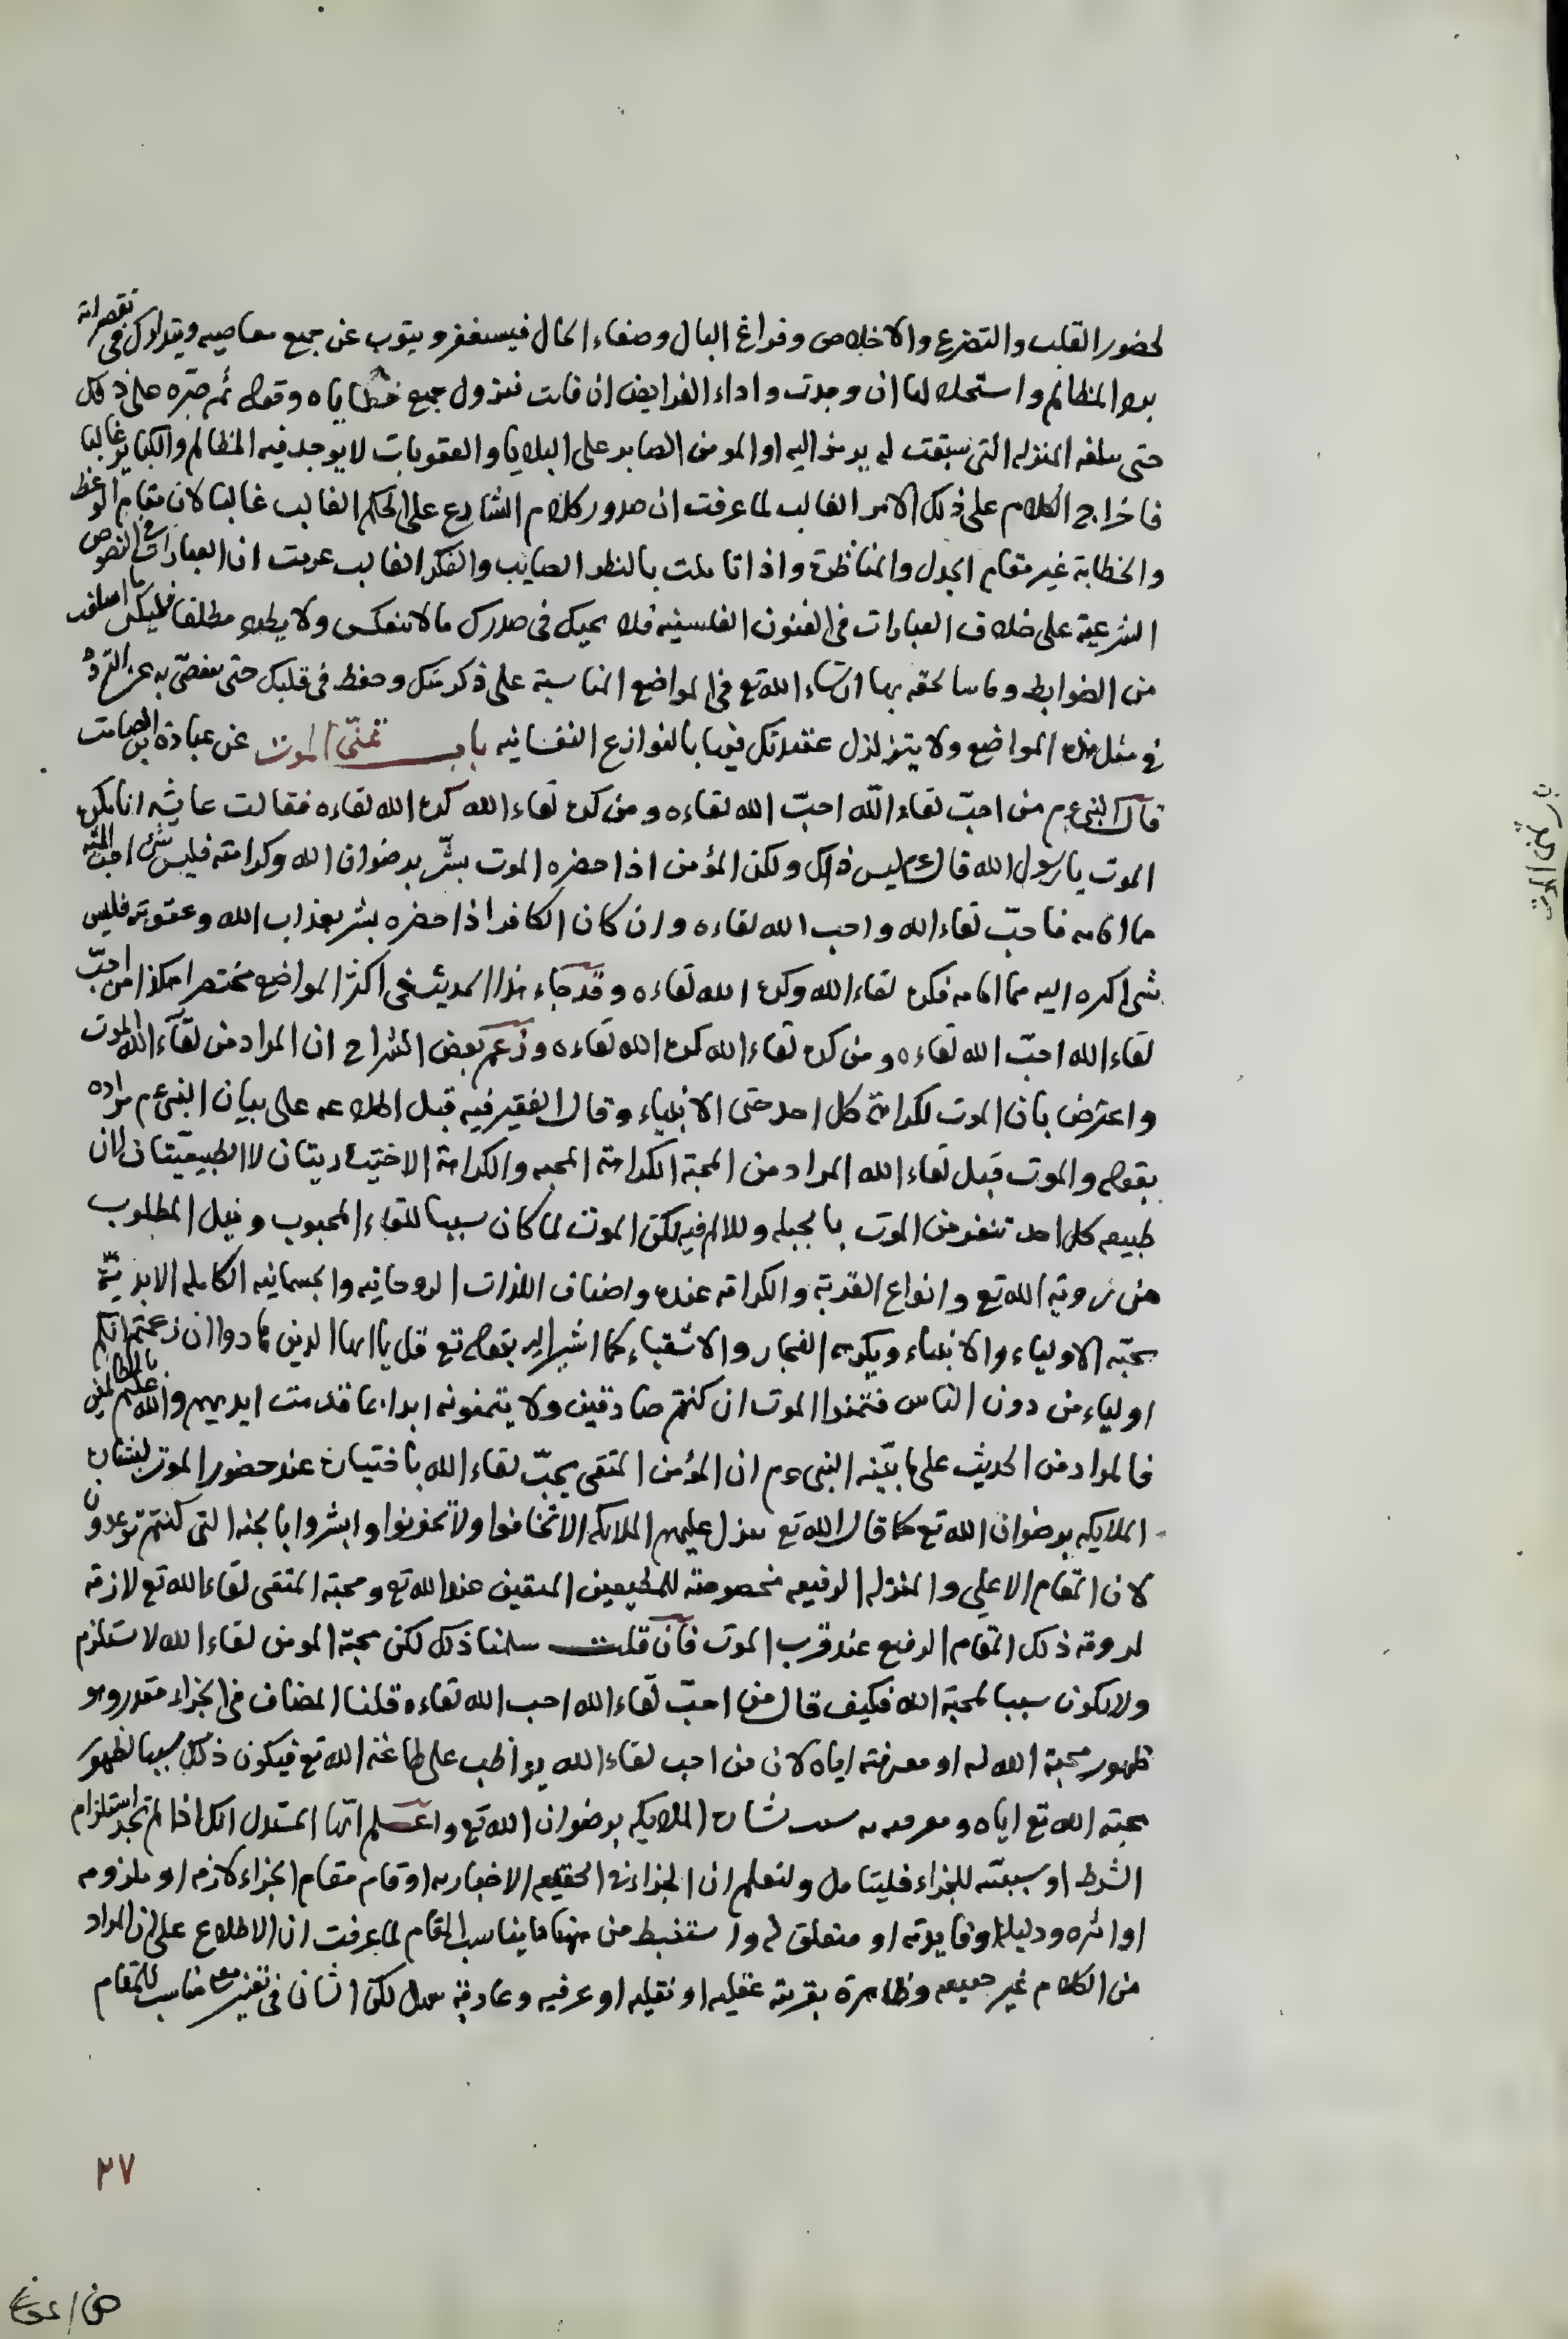 لحضور القلب والتضرع والاخلاص وفراغ البال وصفاء الحال فيستغفر ويتوب عن جميع معاصيه ويتدارك في تقصيراته
برد المظالم واستحلالها ان وجدت واداء الفرايض ان فاتت فتزول جميع خطاياه وقوله ثم صبره على ذلك
حتى يبلغه المنزلة التي سبقت له يرمز اليه او المومن الصابر على البلايا والعقوبات لا يوجد فيه المظالم والكباير غالبا
فاخراج الكلام على ذلك الامر الغالب لما عرفت ان صدور كلام الشارع على الحكم الغالب غالبا لان مقام الوعظ
والخطابة غير مقام الجدل والمناظرة واذا تاملت بالنظر الصايب والفكر الغالب عرفت ان العبارات في النصوص
الشرعية على خلاف العبارات في الفنون الفلسفيه فلا يحيك في صدرك ما لا تنعكس ولا يطرد مطلقا فليكن ما اسلفت
من الضوابط وما سالحقه بها ان شاء الله تع في المواضع المناسبة على ذكر منك وحفظ في قلبك حتى تتفصى به عن التردد
في مثل هذه المواضع ولا يتزلزل عقيدتك فيها بالنوازع النفسانيه باب تمنى الموت عن عبادة بن الصامت
قال النبي عم من احبّ لقاء الله احبّ الله لقاءه ومن كره لقاء الله كره الله لقاءه فقالت عايشه انا نكره
الموت يا رسول الله قال عم ليس ذلك ولكن المؤمن اذا حضره الموت بشّر برضوان الله وكرامته فليس شئ احب اليه
مما امامه فاحبّ لقاء الله واحب الله لقاءه وان كان الكافر اذا حضره بشر بعذاب الله وعقوبته فليس
شئ اكره اليه مما امامه فكره لقاء الله وكره الله لقاءه وقد جاء هذا الحديث في اكثر المواضع مختصرا هكذا من احبّ
لقاء الله احبّ الله لقاءه ومن كره لقاء الله كره الله لقاءه وزعم بعض الشراح ان المراد من لقاء الله الموت
واعترض بان الموت لكراهة كل احد حتى الانبياء وقال الفقير فيه قبل اطلاعه على بيان النبي عم مراده
بقوله والموت قبل لقاء الله المراد من المحبة الكراهة المحبه والكراهة الاختياريتان لا الطبيعيّتان لان
طبيعه كل احد تنفر من الموت بالجبله وللالم فيه لكن الموت لما كان سببا للقاء المحبوب ونيل المطلوب
من رويه الله تع وانواع القربة والكرامة عنده واصناف اللذات الروحانيه والجسمانيه الكامله الابديّه
يحبّه الاولياء والانبياء ويكرهه الفجار والاشقياء كما اشير اليه بقوله تع قل يا ايها الذين هادوا ان زعمتم انكم
اولياء من دون الناس فتمنوا الموت ان كنتم صادقين ولا يتمنونه ابدا بما قدمت ايديهم والله عليم بالظالمين
فالمراد من الحديث على ما بيّنه النبي عم ان المؤمن المتقي يحبّ لقاء الله باختياره عند حضور الموت لبشارة
الملايكه برضوان الله تع كما قال الله تع تتنزل عليهم الملايكه الا تخافوا ولا تحزنوا وابشروا بالجنه التي كنتم توعدون
لان المقام الاعلى والمنزله الرفيعه مخصوصة للمطيعين المتقين عند الله تع ومحبة المتقي لقاء الله تع لازمة
لرويه ذلك المقام الرفيع عند قرب الموت فان قلت سلمنا ذلك لكن محبة المومن لقاء الله لا تستلزم
ولا يكون سببا لمحبة الله فكيف قال من احبّ لقاء الله احب الله لقاءه قلنا المضاف في الجزاء مقدر وهو
ظهور محبة الله له او معرفته اياه لان من احب لقاء الله يواظب على طاعة الله تع فيكون ذلك سببا لظهور
محبته الله تع اياه ومعرفته بشارة الملايكه برضوان الله تع واعلم ايها المستدل انك اذا لم تجد استلزام
الشرط او سببيّته للجزاء فليتامل ولتعلم ان الجزاء في الحقيقة الاخبار به او قام مقام الجزاء لازمه او ملزومه
او اثره ودليله او فايدته او متعلق له واستنبط من بينها ما يناسب المقام لما عرفت ان الاطلاع على ان المراد
من الكلام غير حقيقه وظاهره بقرينة عقليه او نقليه او عرفيه وعادية سهل لكن الشان في تعيين معنى مناسب للمقام
باب تمنى الموت
٢٧